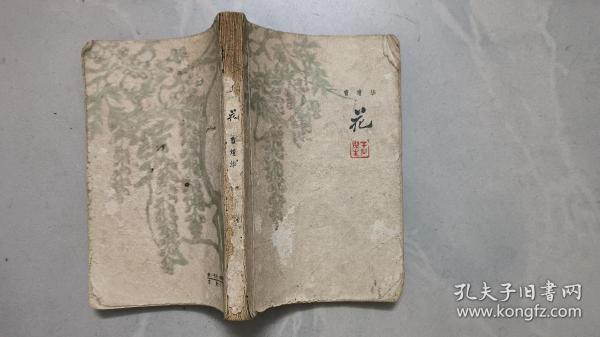 曹靖华
花
花
曹靖华
孔夫子旧书网
www.kongfz.com